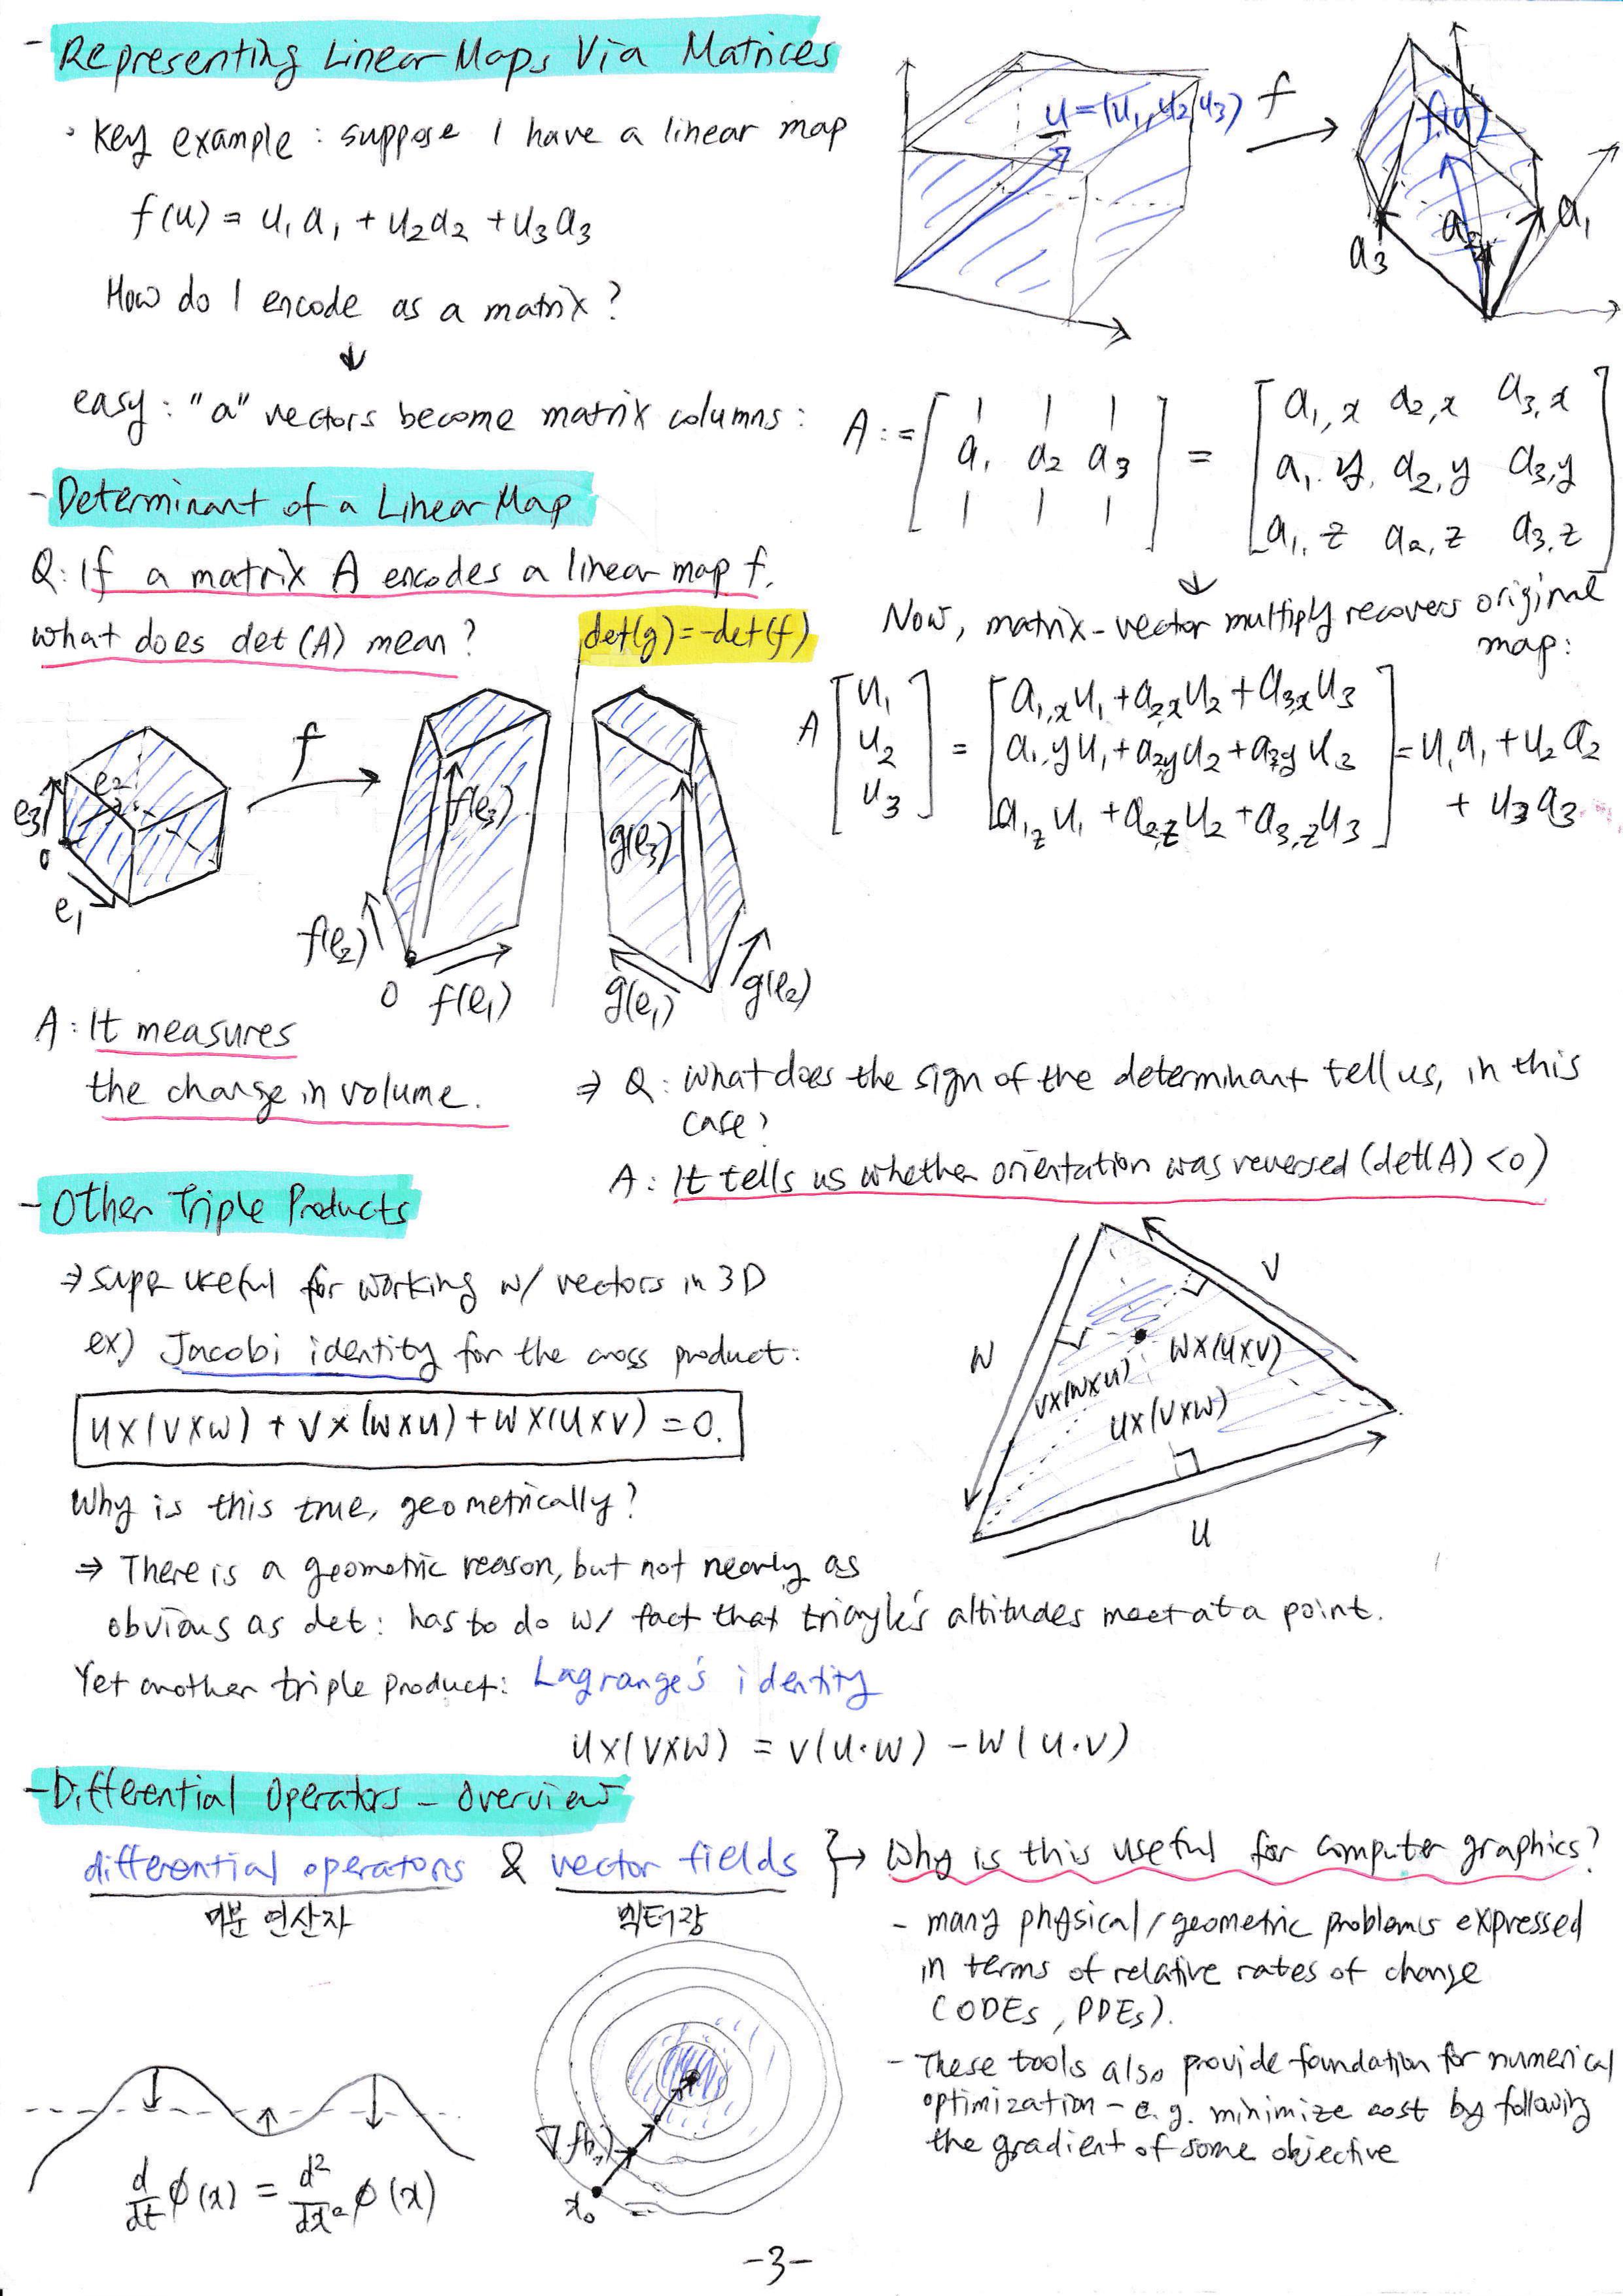 - Representing Linear Maps Via Matrices
· key example : suppose I have a linear map
f(u) = u₁a₁ + u₂a₂ + u₃a₃
How do I encode as a matrix?
↓
easy : "a" vectors become matrix columns :
u=(u₁, u₂ u₃)
f
f(u)
a₃
a₂
a₁
A := [ a₁ a₂ a₃ ] = [ a₁,x a₂,x a₃,x
a₁,y, a₂,y a₃,y
a₁,z a₂,z a₃,z ]
↓
Now, matrix-vector multiply recovers original
map:
A [ u₁ u₂ u₃ ] = [ a₁,x u₁ + a₂,x u₂ + a₃,x u₃
a₁,y u₁ + a₂,y u₂ + a₃,y u₃
a₁,z u₁ + a₂,z u₂ + a₃,z u₃ ] = u₁a₁ + u₂a₂
+ u₃a₃
- Determinant of a Linear Map
Q: If a matrix A encodes a linear map f.
what does det(A) mean?
det(g)=-det(f)
e₃
e₂
0
e₁
f
f(e₃)
f(e₂)
0
f(e₁)
g(e₃)
g(e₁)
g(e₂)
A: It measures
the change in volume.
⇒ Q: what does the sign of the determinant tell us, in this
case?
A: It tells us whether orientation was reversed (det(A) <0)
- Other Triple Products
⇒ super useful for working w/ vectors in 3D
ex) Jacobi identity for the cross product:
u×(v×w) + v×(w×u) + w×(u×v) = 0.
w
v
v×(w×u)
w×(u×v)
u×(v×w)
u
Why is this true, geometrically?
⇒ There is a geometric reason, but not nearly as
obvious as det: has to do w/ fact that triangle's altitudes meet at a point.
Yet another triple product: Lagrange's identity
u×(v×w) = v(u·w) - w(u·v)
- Differential Operators - Overview
differential operators & vector fields
미분 연산자 벡터장
→ Why is this useful for computer graphics?
- many physical/geometric problems expressed
in terms of relative rates of change
(ODEs, PDEs).
- These tools also provide foundation for numerical
optimization - e.g. minimize cost by following
the gradient of some objective
d/dt ϕ(x) = d²/dx² ϕ(x)
x₀
-3-